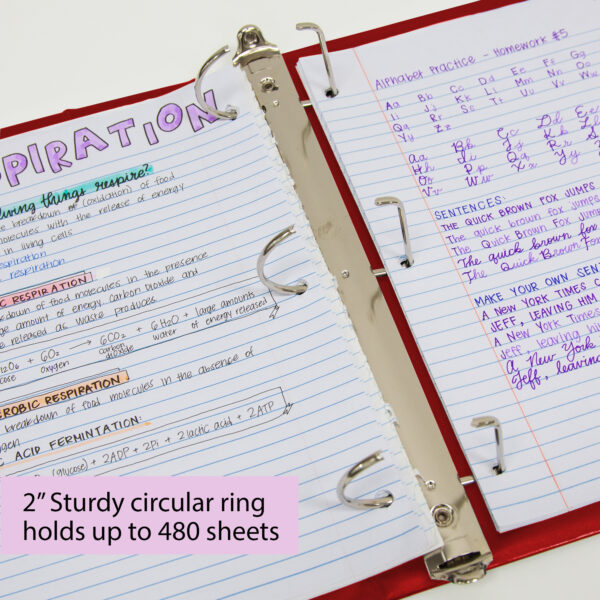 PIRATION
living things respire?
e breakdown of (oxidation) of food
molecules with the release of energy
in living cells
respiration
respiration
IC RESPIRATION
down of food molecules in the presence
ge amount of energy. Carbon Dioxide and
e released as waste produces
+ 6O2 → 6CO2 + 6H2O + large amounts
ose oxygen carbon dioxide water of energy released
EROBIC RESPIRATION
breakdown of food molecules in the absence of
ygen
C ACID FERMINTATION:
(glucose) + 2ADP + 2Pi → 2 lactic acid + 2ATP
Alphabet Practice - Homework #5
Aa Bb Cc Dd Ee Ff Gg
Ii Jj Kk Ll Mm Nn Oo
Qq Rr Ss Tt Uu Vv W
Yy Zz
Aa Bb Cc Dd E
Hh Ii Jj Kk L
Oo Pp Qq Rr
Vv Ww Xx Yy
SENTENCES:
THE QUICK BROWN FOX JUMPS
The quick brown fox jumps
The Quick Brown Fox Jump
The quick brown fox
The Quick Brown Fox
MAKE YOUR OWN SENT
A NEW YORK TIMES C
JEFF, LEAVING HIM
A New York Times
Jeff, leaving hi
A New York
Jeff, leavin
2” Sturdy circular ring
holds up to 480 sheets